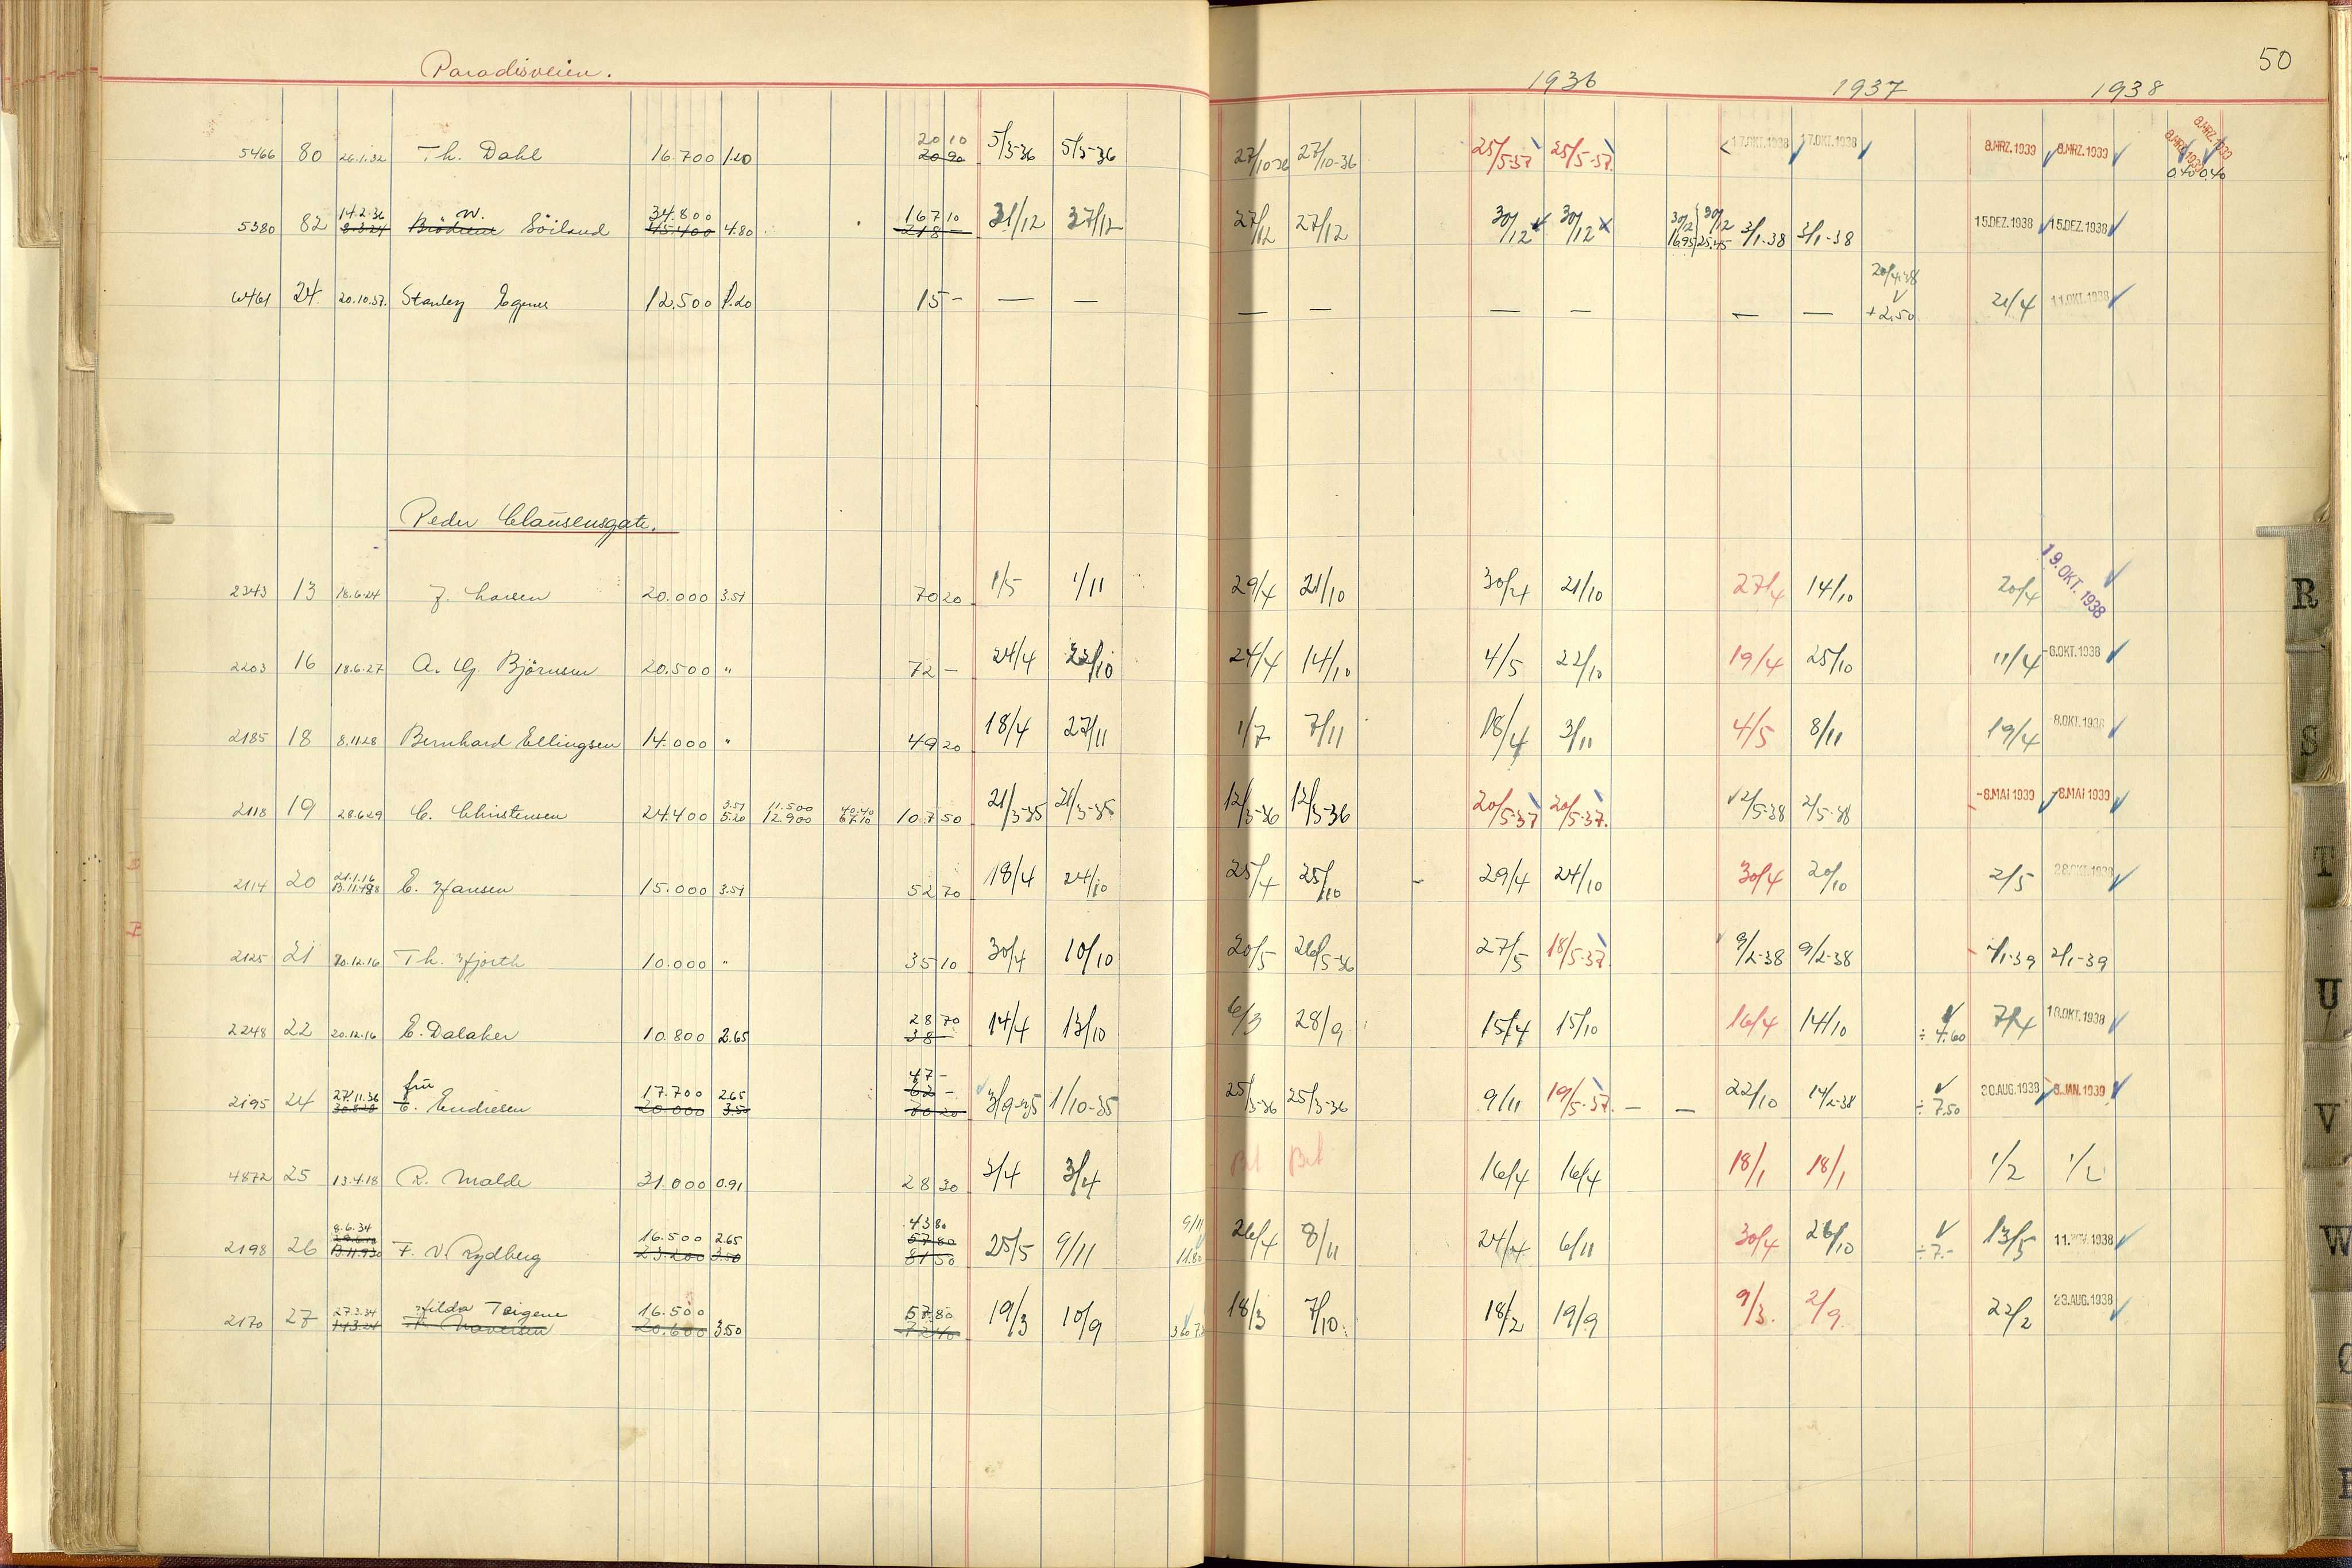 50
Paradisveien. 1936 1937 1938
5466 80 26.1.32 Th. Dahl 16.700 1.20 20 10 20 90 5/3-36 5/3-36 27/10-36 27/10-36 25/5-37 25/5-37. 17.OKT.1938 17.OKT.1938 8.MRZ.1939 8.MRZ.1939 8.MRZ.1939 8.MRZ.1939 0.40 0.40
5380 82 14.2.36 8.3.24 W. Brödrene Söiland 34.800 45.400 4.80 167 10 218 - 31/12 27/12 27/12 27/12 30/12 30/12 30/12 16.95 30/12 25.45 3/1-38 3/1-38 15.DEZ.1938 15.DEZ.1938
24 20.10.37. Stanley Egenes 12.500 1.20 15 - — — — — — — — — 20/4-38 +2.50 21/4 11.OKT.1938
Peder Claüsensgate.
2343 13 18.6.24 20.000 3.51 70 20 1/5 1/11 29/4 21/10 30/4 21/10 27/4 14/10 20/4 19.OKT.1938
2203 16 18.6.27 A. G. Björnsen 20.500 " 72 - 24/4 22/10 24/4 14/10 4/5 22/10 19/4 25/10 11/4 -6.OKT.1938
2185 18 8.11.28 Bernhard Ellingsen 14.000 " 49 20 18/4 27/11 1/7 7/11 18/4 3/11 4/5 8/11 19/4 8.OKT.1938
2118 19 28.6.29 C. Christensen 24.400 3.51 5.20 11.500 12.900 40.40 67.10 107 50 21/3-35 21/3-35 12/3-36 12/3-36 20/5-37 20/5-37. 2/5-38 2/5-38 -8.MAI 1939 -8.MAI 1939
2114 20 21.1.16 E. Hansen 15.000 3.51 52 70 18/4 24/10 25/4 25/10 - 29/4 24/10 30/4 20/10 2/5 28.OKT.1938
2125 21 20.12.16 Th. Hjorth 10.000 " 35 10 30/4 10/10 20/5 26/5-36 27/5 18/5-37. 9/2-38 9/2-38 2/1-39 2/1-39
2248 22 20.12.16 E. Dalaker 10.800 2.65 28 70 38 - 14/4 13/10 6/3 28/9 15/4 15/10 16/4 14/10 ÷ 4.60 7/4 18.OKT.1938
2195 24 27.11.36 früe E. Endresen 17.700 20.000 2.65 3.50 47 - 62 - 70 20 3/9-35 1/10-35 25/3-36 25/3-36 9/11 19/5-37. — — 22/10 14/2-38 ÷ 7.50 30.AUG.1938 JAN.1939
4872 25 13.4.18 R. Malde 31.000 0.91 28 30 3/4 3/4 Bet Bet 16/4 16/4 18/1 18/1 1/2 1/2
2198 26 8.6.34 F. V. Rydberg 16.500 23.200 2.65 3.50 43 80 57 80 81 50 25/5 9/11 9/11 11.80 26/4 8/11 24/4 6/11 30/4 26/10 ÷7.- 13/5 11.NOV.1938
2170 27 27.3.34 14.3.24 Hilda Teigene 16.500 20.600 3.50 57 80 72 10 19/3 10/9 18/3 7/10 18/2 19/9 9/3. 2/9. 22/2 23.AUG.1938
R
S
T
U
V
W